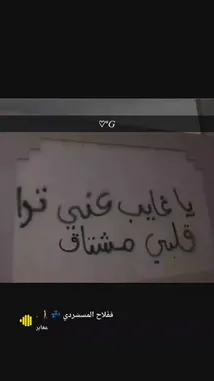 ♡°G
يا غايب عني ترا
قلبي مشتاق
ففلاح المسردي
معابر